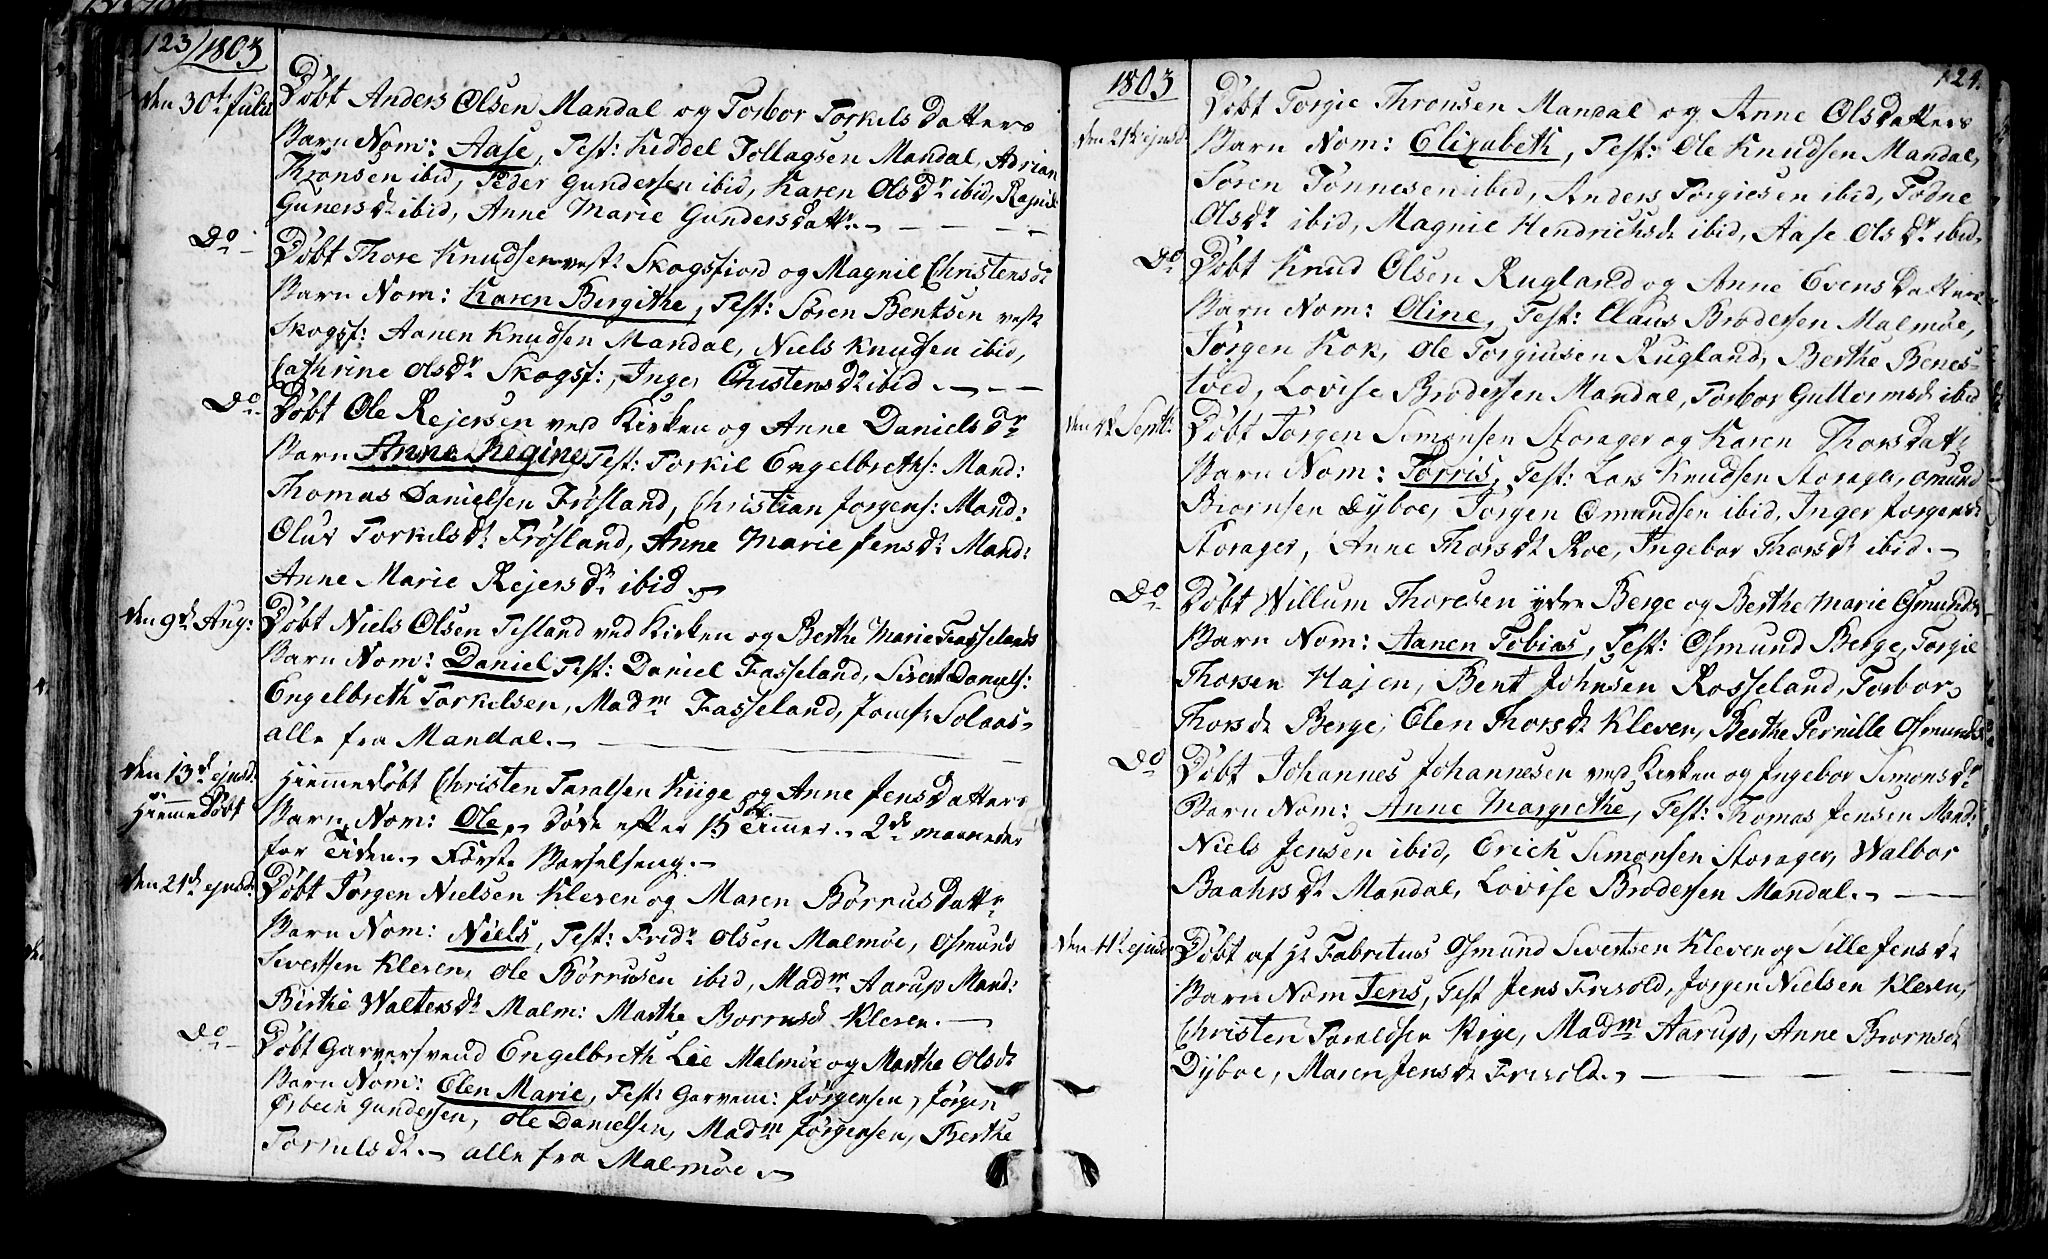 123/ 1803
den 30te Julii
Døbt Anders Olsen Mandal og Torbor Torkils Datters
Barn Nom: Aase, Test: Kiddel Tollagsen Mandal, Adrian
Thronsen ibid, Peder Gundersen ibid, Karen Olsdr ibid, Ragnil
Gunersdr ibid, Anne Marie Gunders Dattr. —
Do —
Døbt Thore Knudsen vest: Skogsfiord og Magnil Christensdr
Barn Nom: Karen Bergithe, Test: Søren Bentsen vest
Skogsf: Aanen Knudsen Mandal, Niels Knudsen ibid,
Cathrine Olsdr Skogsf:, Inger Christensdr ibid. —
Do —
Døbt Ole Rejersen ved Kirken og Anne Daniels Dr
Barn Anne Regine, Test: Torkil Engelbreths: Mand:
Thomas Danielsen Frøsland, Christian Jørgens: Mand:
Oluv Torkilsdr Frøsland, Anne Marie Jensdr Mand:
Anne Marie Rejersdr ibid. —
den 9de Aug:
Døbt Niels Olsen Tisland ved Kirken og Berthe Marie Fasselands
Barn Nom: Daniel Test: Daniel Fasseland, Sivert Daniels:
Engelbreth Torkelsen, Madm Fasseland, Jomf: Solaas
alle fra Mandal. —
den 13de ejusd:
Hiemmedøbt
Hiemmedøbt Christen Taralsen Kiige og Anne Jens Datters
Barn Nom: Ole, døde efter 15 Timer. 2de maaneder
før Tiden. Første Barselseng. —
den 21de ejusd:
Døbt Jørgen Nielsen Kleven og Maren Børrus Dattr
Barn Nom: Niels, Test: Fridr Olsen Malmøe, Osmund
Sivertsen Kleven, Ole Børrusen ibid, Madm Aarup Mand:
Birthe Waltersdr Malm: Marthe Borrusd Kleven. —
Do —
Døbt Garversvend Engelbreth Lie Malmöe og Marthe Olsdr
Barn Nom: Elen Marie, Test: Garvem: Jørgensen, Jørgen
Gundersen, Ole Danielsen, Madm Jørgensen, Berthe
Torkulsdr. — alle fra Malmöe. —
124.
1803
den 21de ejusd:
Døbt Torgie Thronsen Mandal og Anne Ols Datters
Barn Nom: Elizabeth, Test: Ole Knudsen Mandal,
Søren Tønnesen ibid, Anders Torgiesen ibid, Todne
Olsdr ibid, Magnil Hendrichsdr ibid, Aase Olsdr ibid.
Do
Døbt Knud Olsen Rugland og Anne Evens Datters
Barn Nom: Oline, Test: Claus Brodersen Malmöe,
Jørgen Kok, Ole Torgiusen Rugland, Berthe Benes-
tved, Lovise Brodersen Mandal, Torbor Guttormsdr ibid
den 4de Septr:
Døbt Jørgen Simonsen Storager og Karen Thorsdatt:
Barn Nom: Torris, Test: Lars Knudsen Storager, Omund
Biørnsen Dyboe, Jørgen Omundsen ibid, Inger Jørgensdr
Storager, Anne Thorsdr Roe, Ingebor Thorsdr ibid. —
Do —
Døbt Willum Thoresen ydre Berge og Berthe Marie Osmundsdr
Barn Nom: Aanen Tobias, Test: Osmund Berge, Torgil
Thorsen Hajen, Bent Johnsen Rosseland, Torbor
Thorsdr Berge, Elen Thorsdr Kleven, Berthe Pernille Osmundsd
Do —
Døbt Johannes Johannesen ved Kirken og Ingebor Simonsdr
Barn Nom: Anne Margrethe, Test: Thomas Jensen Mand:
Niels Jensen ibid, Erich Simonsen Storager, Walbor
Baahrsdr Mandal, Lovise Brodersen Mandal. —
den 11te ejusd:
Døbt af Hr Fabretius Osmund Sivertsen Kleven og Sille Jensdr
Barn Nom Jens, Test Jens Frisold, Jørgen Nielsen Kleven,
Christen Taraldsen Kige, Madm Aarup, Anne Biørnsdr
Dyboe, Maren Jensdr Frisold. —